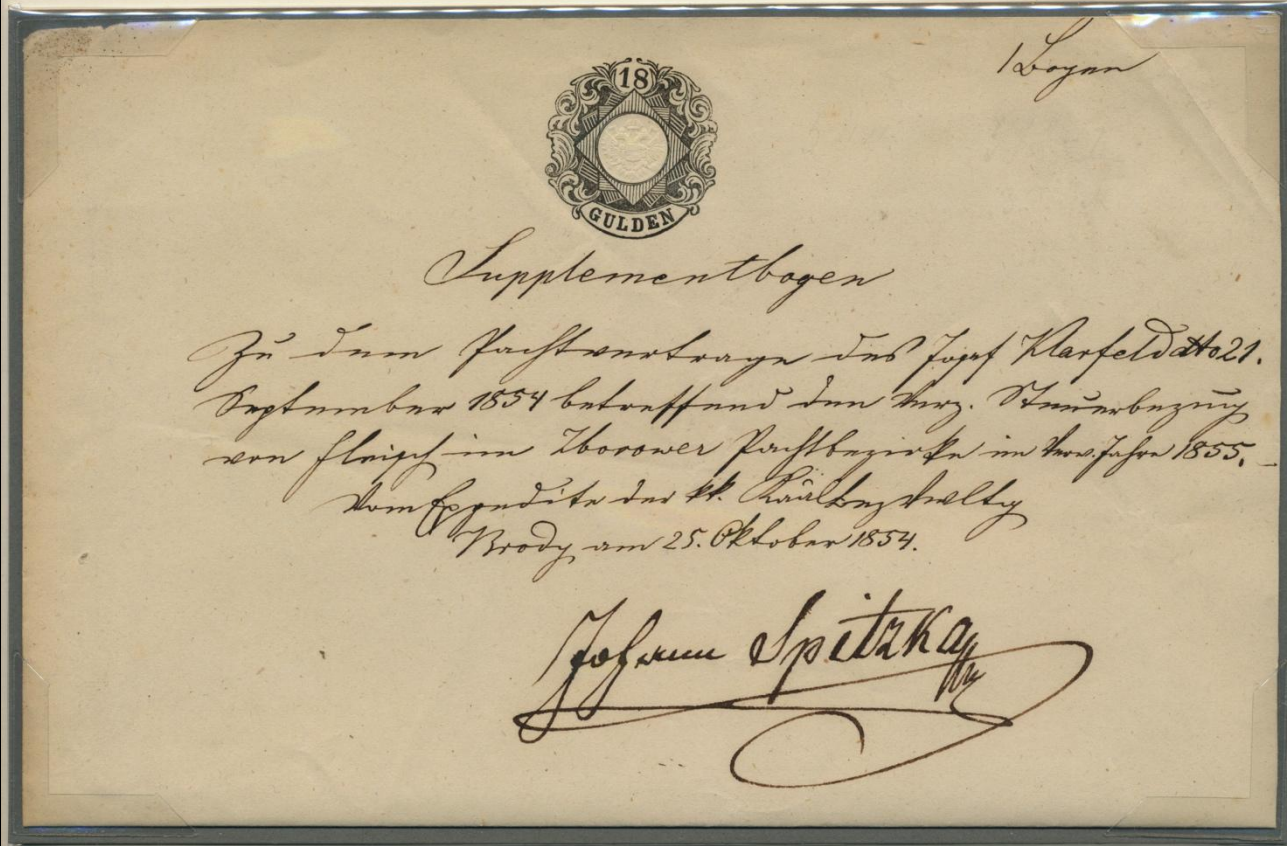 1 Bogen
18
GULDEN
Supplementbogen
Zu dem Pachtvertrage des Josef Klarfeld dtto 21.
September 1854 betreffend den Verz. Steuerbezug
von Fleisch im Zborower Pachtbezirke im Verw. Jahre 1855.
Vom Expedite der kk.
Brody am 25. Oktober 1854.
Johann Spitzka